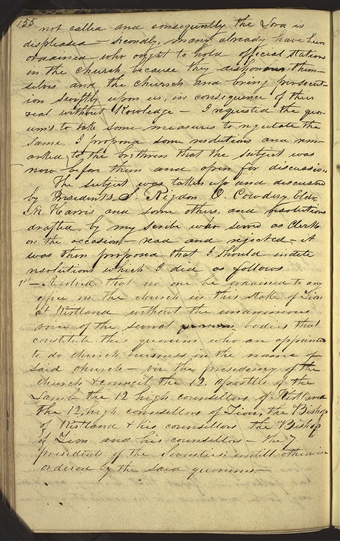 155
not called and consequently the Lord is
displeased — secondly, many already have been
ordained who ought to hold official stations
in the Church because they dishonour them-
selves and the church and bring persecut-
ion swiftly upon us, in consequence of their
zeal without knowledge — I requested the quo-
rums to take some measures to regulate the
same. I proposed some resolutions and rem-
arked to the brethren that the subject was
now before them and open for discussion
The subject was taken up and discussed
by Presidents S. Rigdon O. Cowdery Elder
M. Harris and some others, and resolutions
drafted by my scribe who served as clerk
on the occasion — read and rejected — it
was then proposed that I should indite
resolutions which I did as follows
1st — Resolved that no one be ordained to any
office in the church in this stake of Zion
at Kirtland without the unanimous
voice of the several bodies that
constitute the quorum who are appointed
to do church business in the name of
said church — viz the presidency of the
church & council the 12 apostles of the
Lamb the 12 high counsellors of Kirtland
the 12 high counsellors of Zion, the Bishop
of Kirtland & his counsellors the Bishop
of Zion and his counsellors — the 7
presidents of the seventies; until otherwise
ordered by the said quorums —